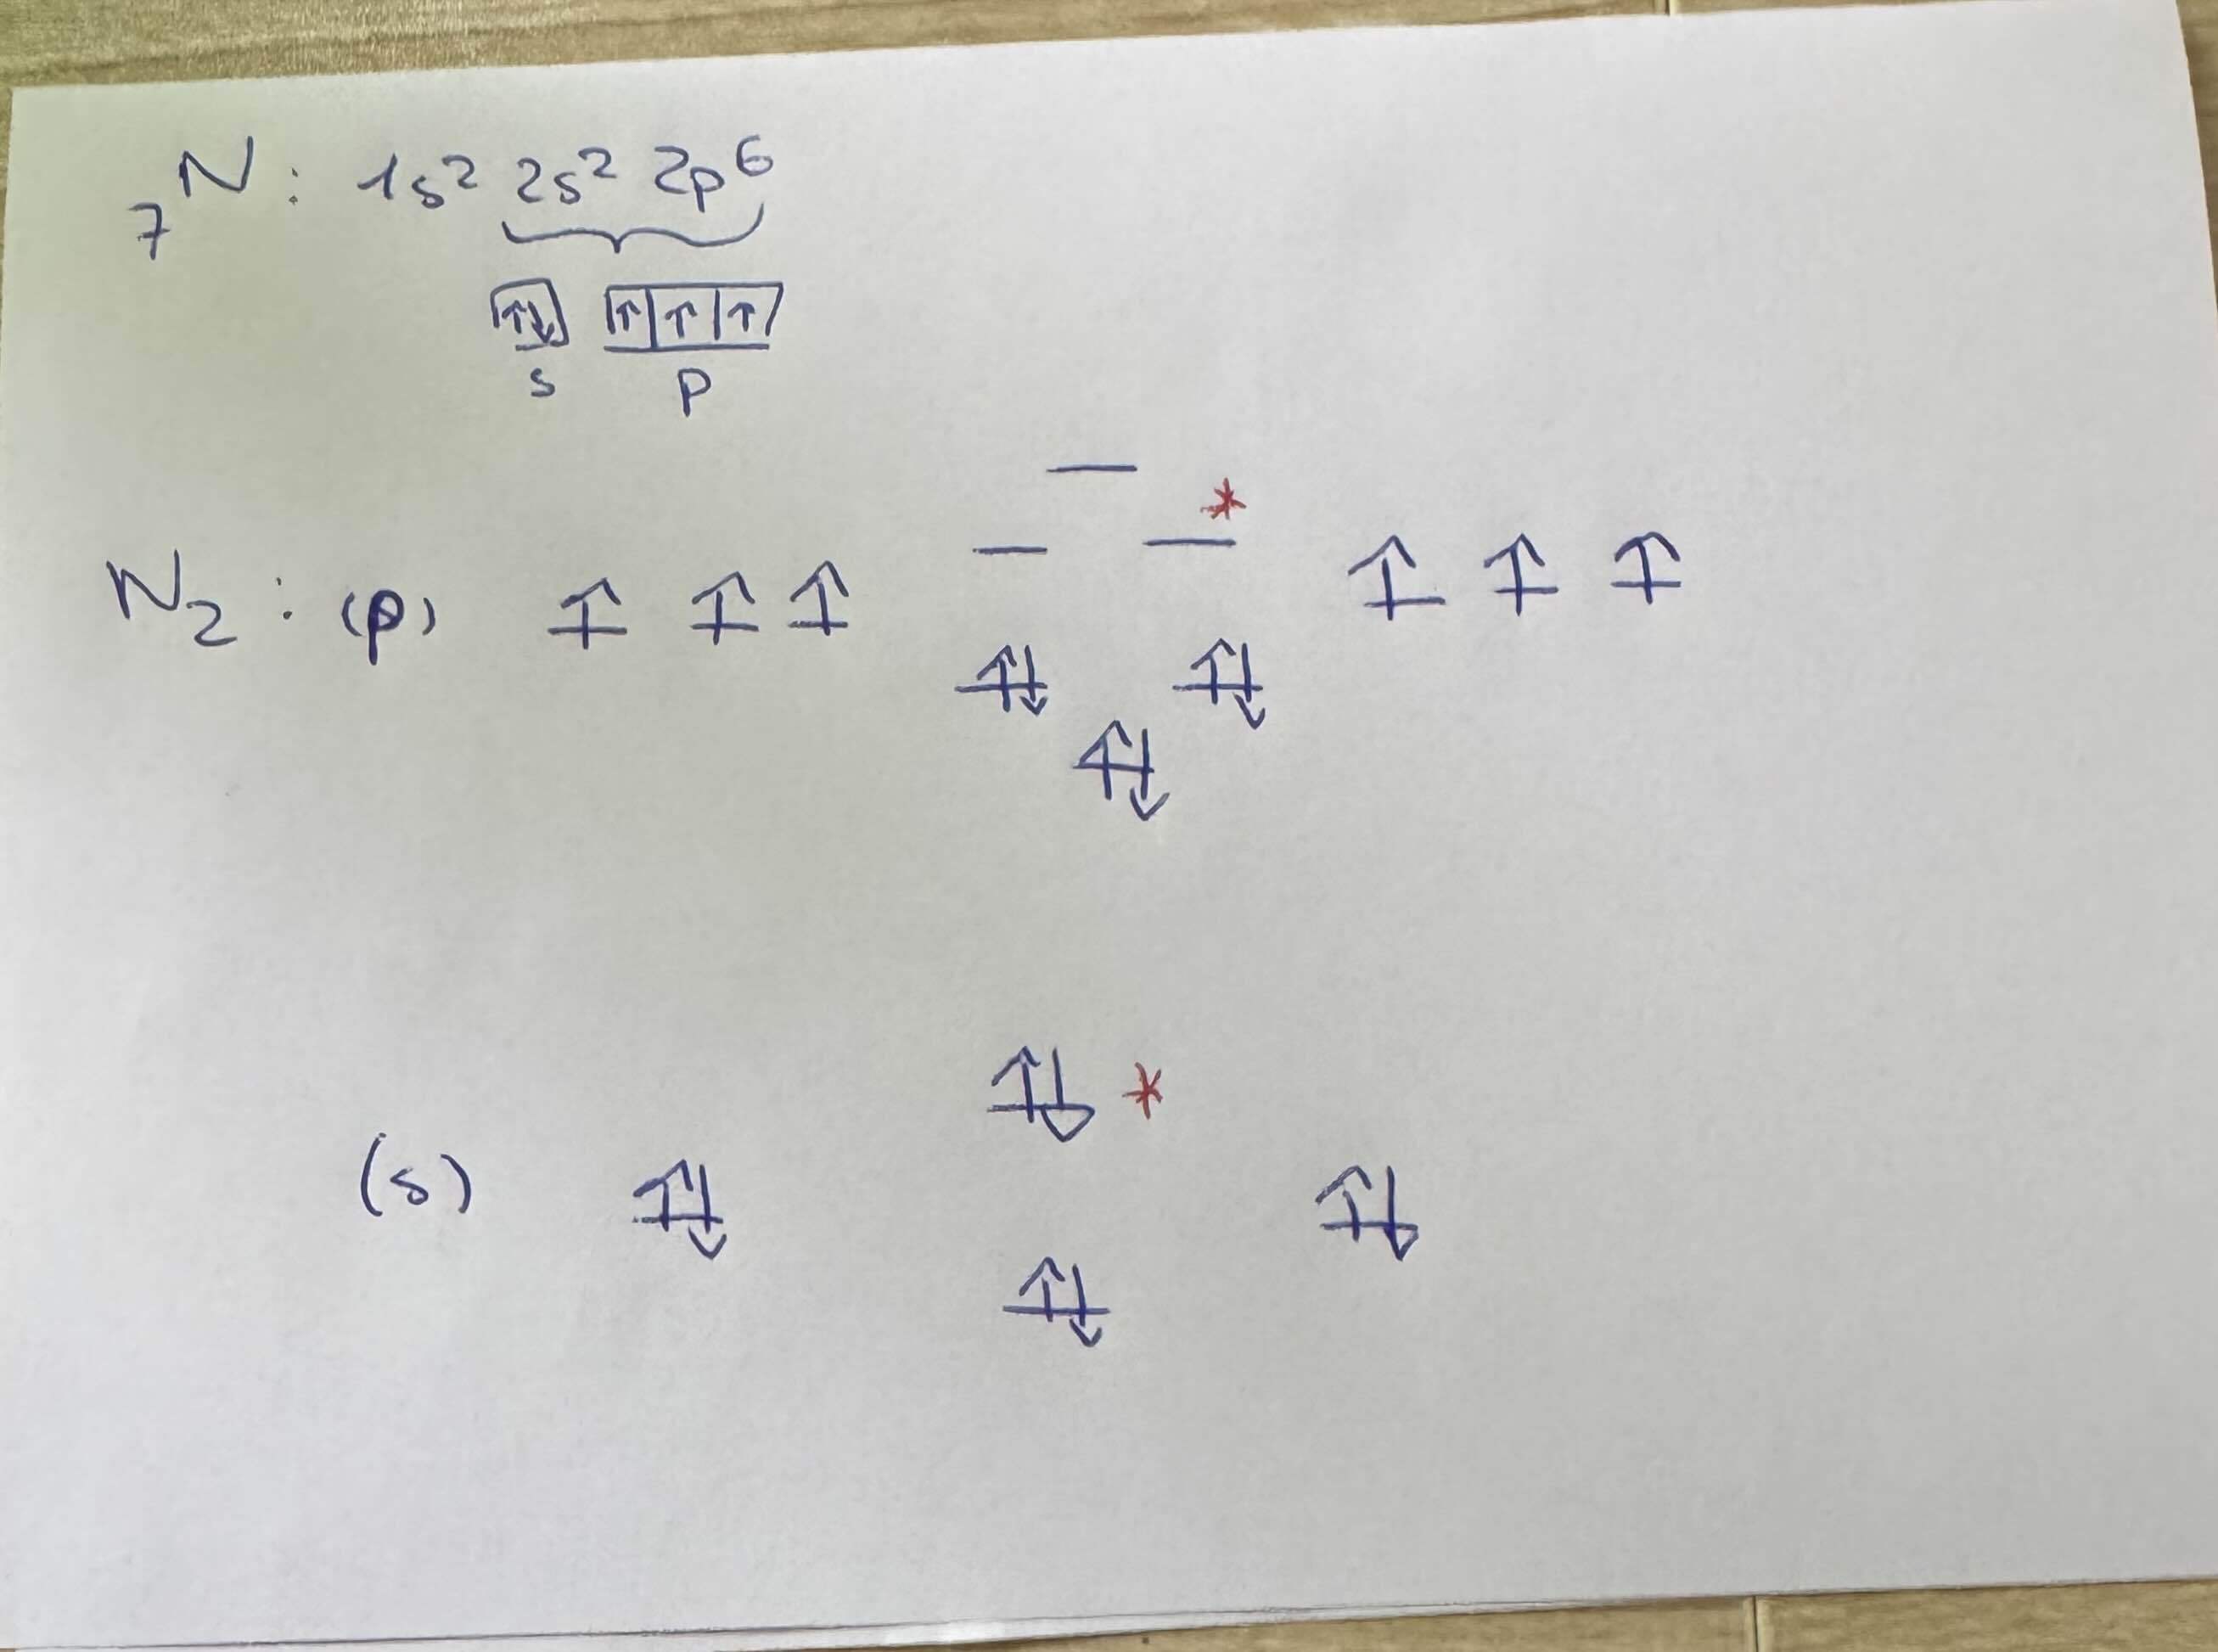 ₇N: 1s² 2s² 2p⁶
↑↓ ↑ ↑ ↑
s p
*
N₂: (p) ↑ ↑ ↑ ↑ ↑ ↑
↑↓ ↑↓
↑↓
↑↓ *
(s) ↑↓ ↑↓
↑↓